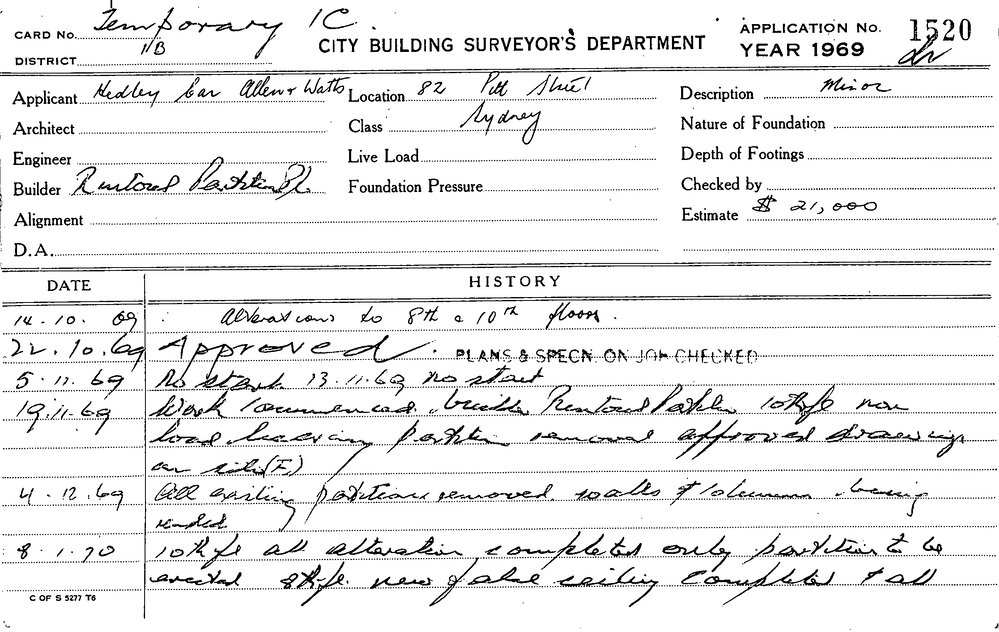 CARD No. Temporary 1C.
DISTRICT 1/B
CITY BUILDING SURVEYOR'S DEPARTMENT
APPLICATION No. 1520
YEAR 1969
Applicant Hedley Car Allen & Watts
Location 82 Pitt Street
Description Minor
Architect
Class Sydney
Nature of Foundation
Engineer
Live Load
Depth of Footings
Builder Partition P/L
Foundation Pressure
Checked by
Alignment
Estimate $ 21,000
D.A.
DATE HISTORY
14.10.69 Alterations to 8th & 10th floors.
22.10.69 Approved. PLANS & SPECN. ON JOB CHECKED
5.11.69 No start 13.11.69 no start
19.11.69 Work commenced. builder 10th fl non
load bearing partition removal approved drawings
on site
4.12.69 All existing partitions removed. walls & columns being
8.1.70 10th fl all alteration completed only partition to be
erected 8th fl. new false ceiling completed & all
C OF S 5277 T6